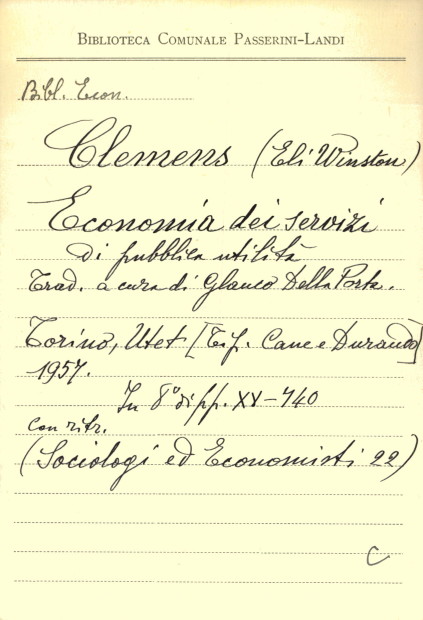 Biblioteca Comunale Passerini-Landi
Bibl. Econ.
Clemens (Eli Winston)
Economia dei servizi
di pubblica utilità
Trad. a cura di Glauco Della Porta.
Torino, Utet [Tip. Cane e Durando]
1957.
In 8° di pp. XV-740
con ritr.
(Sociologi ed Economisti 22)
C